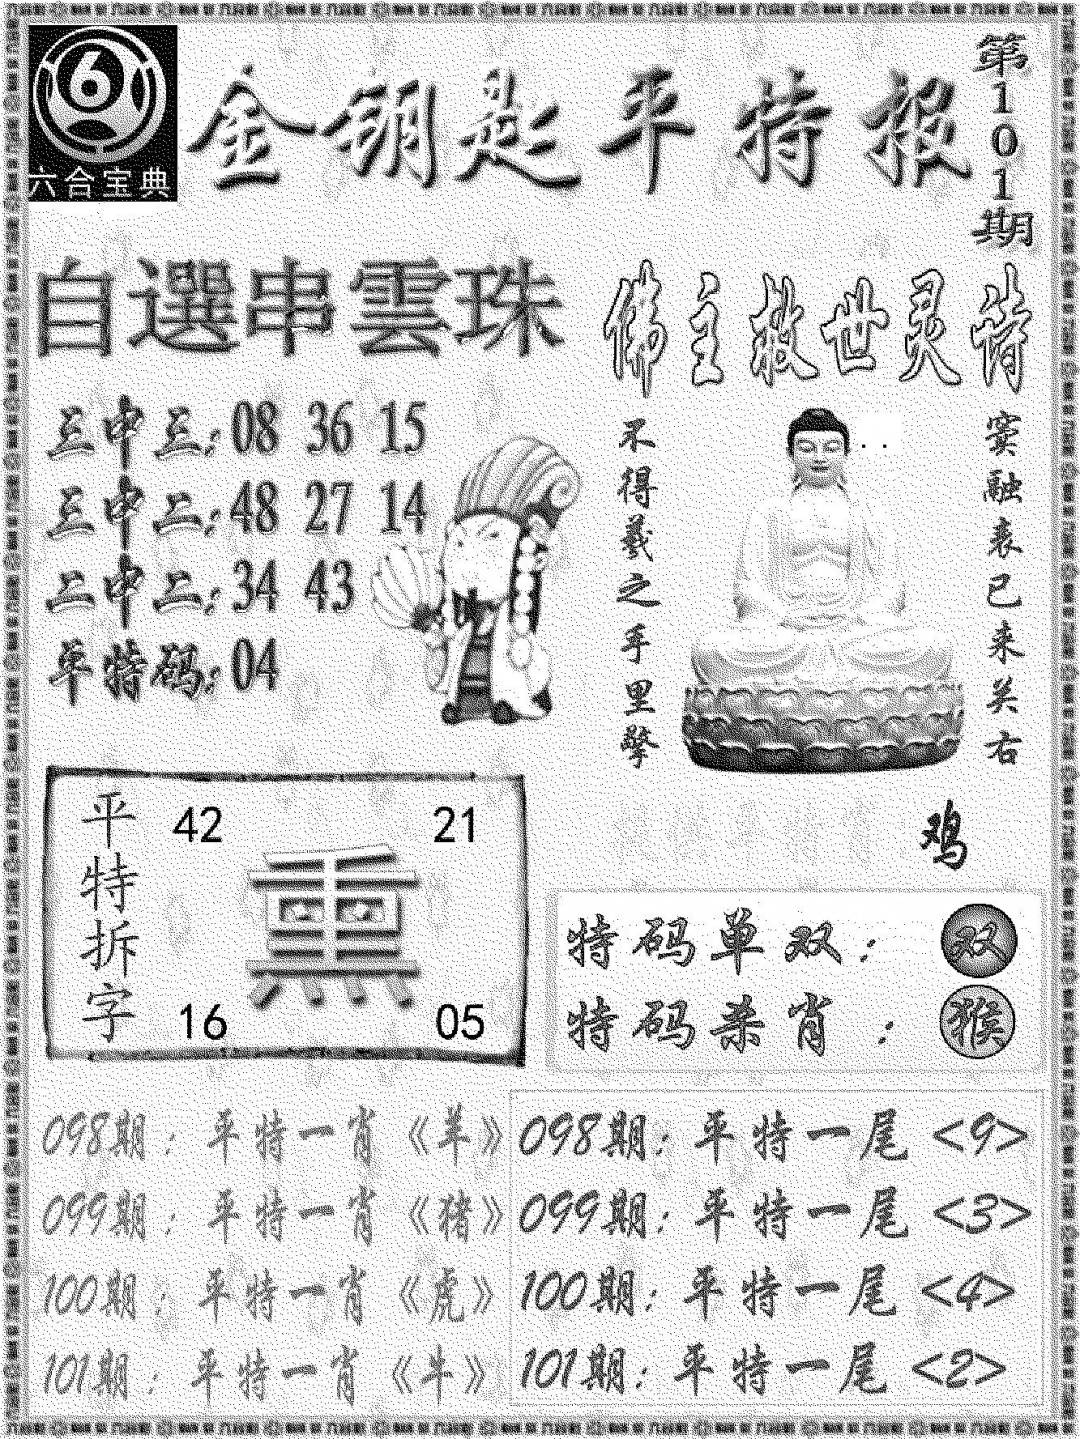 六合宝典
金钥匙平特报
第101期
自選串雲珠
三中三:08 36 15
三中二:48 27 14
二中二:34 43
单特码:04
佛主救世灵诗
窦融表已来关右
不得羲之手里擎
鸡
平特拆字
42
21
熏
16
05
特码单双:双
特码杀肖:猴
098期:平特一肖《羊》
099期:平特一肖《猪》
100期:平特一肖《虎》
101期:平特一肖《牛》
098期:平特一尾<9>
099期:平特一尾<3>
100期:平特一尾<4>
101期:平特一尾<2>